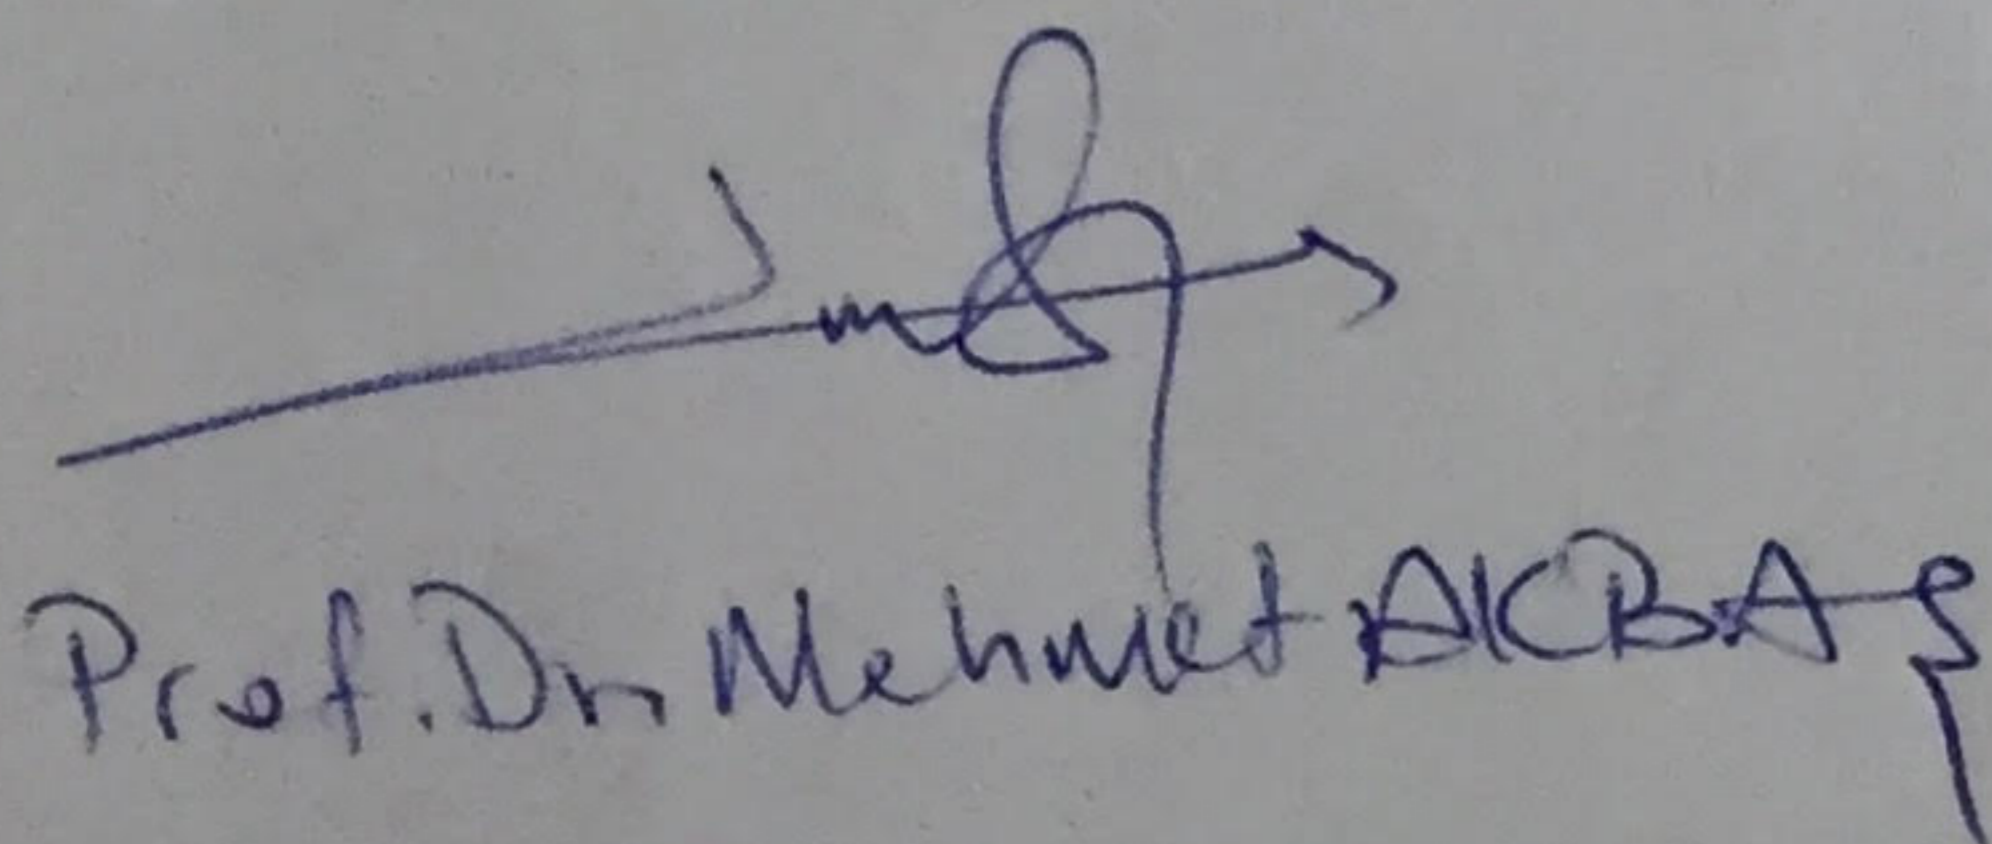 Prof. Dr. Mehmet AKBAŞ